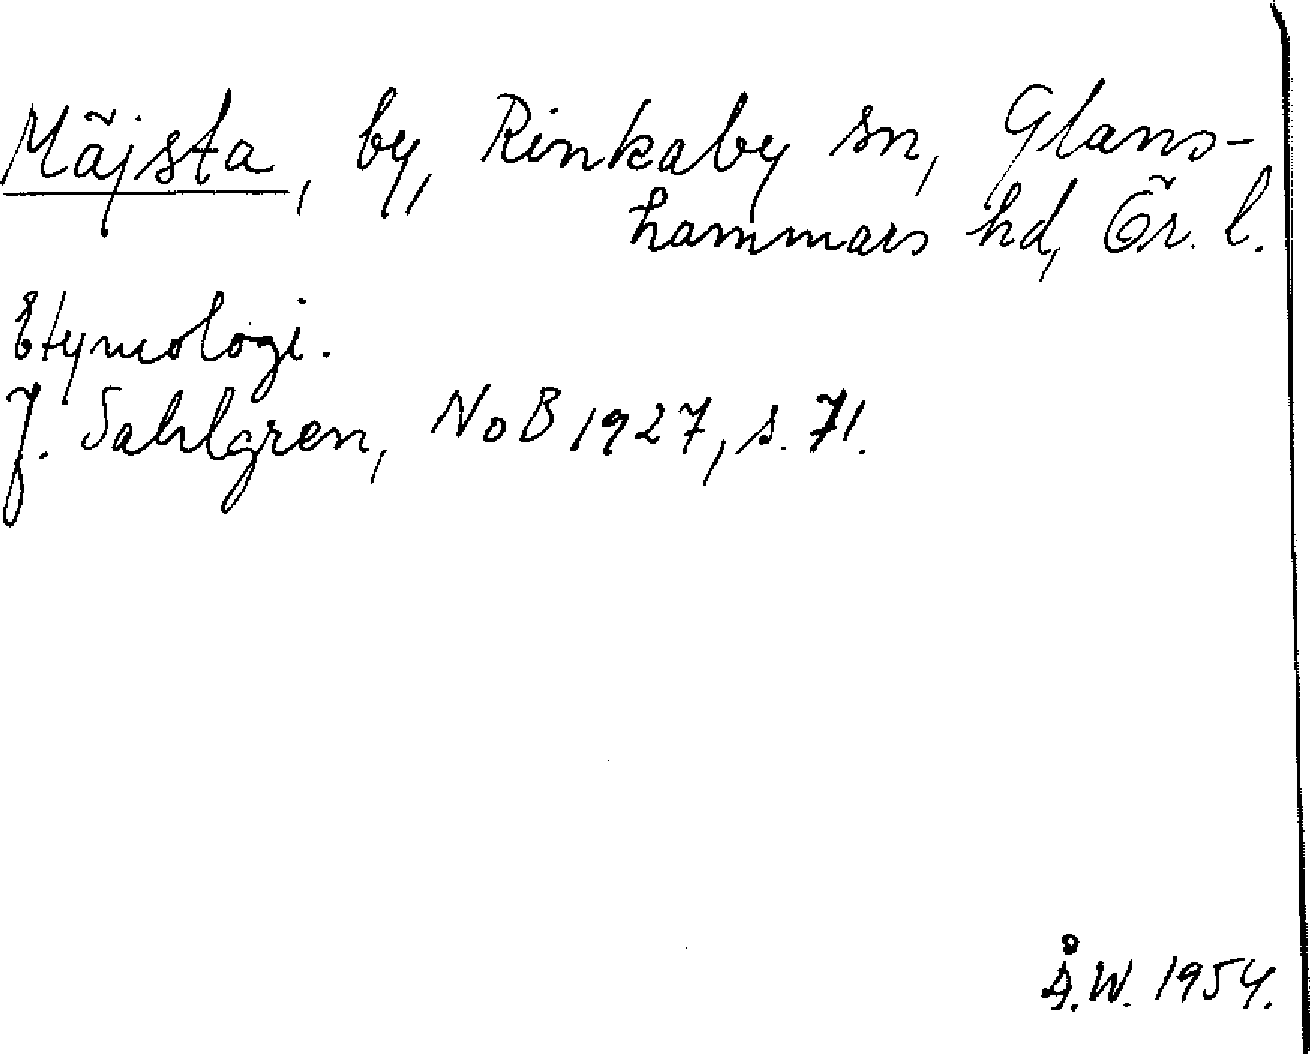 Mäjsta, by, Rinkaby sn, Glans-
hammars hd, Ör. l.
Etymologi.
J. Sahlgren, NoB 1927, s. 71.
Å.W. 1954.